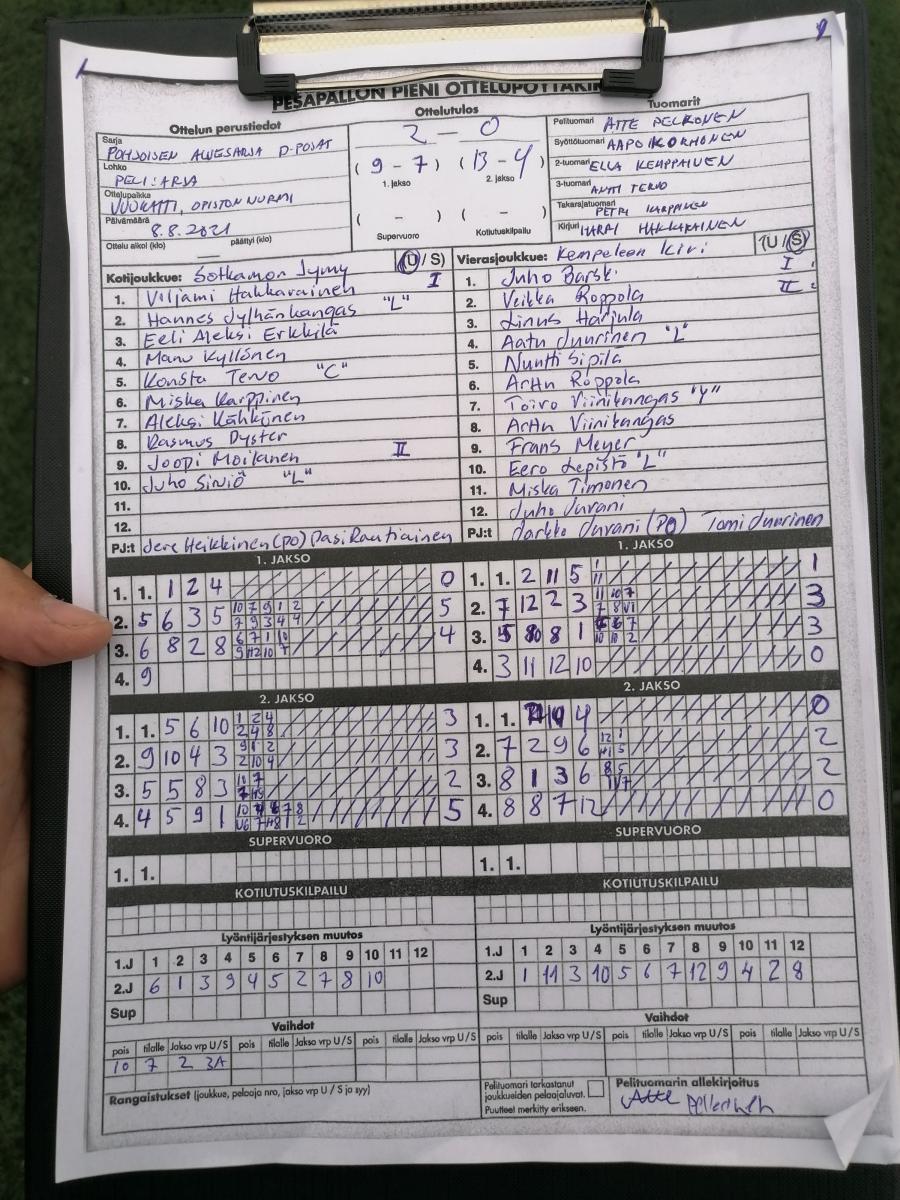 PESÄPALLON PIENI OTTELUPÖYTÄKIR
Ottelun perustiedot
Sarja
POHJOISEN ALUESARJA D-POJAT
Lohko
PELI:ARJA
Ottelupaikka
VUOKATTI, OPISTON NURMI
Päivämäärä
8.8.2021
Ottelu alkoi (klo) päättyi (klo)
Ottelutulos
2 - 0
( 9 - 7 ) ( 13 - 4 )
1. jakso 2. jakso
( - ) ( - )
Supervuoro Kotiutuskilpailu
Tuomarit
Pelituomari ATTE PELKONEN
Syöttötuomari AAPO KORHONEN
2-tuomari ELLA KEMPPAINEN
3-tuomari ANTTI TERVO
Takarajatuomari PETRI KARPPINEN
Kirjuri HARRI HAKKARAINEN
Kotijoukkue: Sotkamon Jymy (U/S)
1. Viljami Hakkarainen I
2. Hannes Jylhänkangas "L"
3. Eeli Aleksi Erkkilä
4. Manu Kyllönen
5. Konsta Tervo "C"
6. Miska Karppinen
7. Aleksi Kähkönen
8. Rasmus Dyster
9. Joopi Moilanen II
10. Juho Siviö "L"
11.
12.
PJ:t Jere Heikkinen (PO) Pasi Rautiainen
Vierasjoukkue: Kempeleen Kiri (U/S)
1. Juho Barsk. I
2. Veikka Roppola II
3. Linus Harjula
4. Aatu Juurinen "L"
5. Nuutti Sipilä
6. Arttu Roppola
7. Toivo Viinikangas "V"
8. Arttu Viinikangas
9. Frans Meyer
10. Eero Lepistö "L"
11. Miska Timonen
12. Juho Juvani
PJ:t Jarkko Juvani (PO) Tomi Juurinen
1. JAKSO
1. 1. 1 2 4 0
2. 5 6 3 5 10 7 9 1 2 5
7 9 3 4 4
3. 6 8 2 8 6 7 1 10 4
4. 9
1. JAKSO
1. 1. 2 11 5 1 1
11
2. 7 12 2 3 11 10 7 3
3. 8 1 3
10 10 2
4. 3 11 12 10 0
2. JAKSO
1. 1. 5 6 10 1 2 4 3
2 4 8
2. 9 10 4 3 9 1 2 3
2 10 4
3. 5 5 8 3 2
4. 4 5 9 1 5
2. JAKSO
1. 1. 4 0
2. 7 2 9 6 12 1 2
3. 8 1 3 6 8 5 2
4. 8 8 7 12 0
SUPERVUORO
1. 1.
SUPERVUORO
1. 1.
KOTIUTUSKILPAILU
KOTIUTUSKILPAILU
Lyöntijärjestyksen muutos
1.J 1 2 3 4 5 6 7 8 9 10 11 12
2.J 6 1 3 9 4 5 2 7 8 10
Sup
Lyöntijärjestyksen muutos
1.J 1 2 3 4 5 6 7 8 9 10 11 12
2.J 1 11 3 10 5 6 7 12 9 4 2 8
Sup
Vaihdot
pois tilalle Jakso vrp U/S pois tilalle Jakso vrp U/S pois tilalle Jakso vrp U/S
10 7 2 3A
Vaihdot
pois tilalle Jakso vrp U/S pois tilalle Jakso vrp U/S pois tilalle Jakso vrp U/S
Rangaistukset (joukkue, pelaaja nro, jakso vrp U/S ja syy)
Pelituomari tarkastanut
joukkueiden pelaajaluvat.
Puutteet merkitty erikseen.
Pelituomarin allekirjoitus
Atte Pelkonen